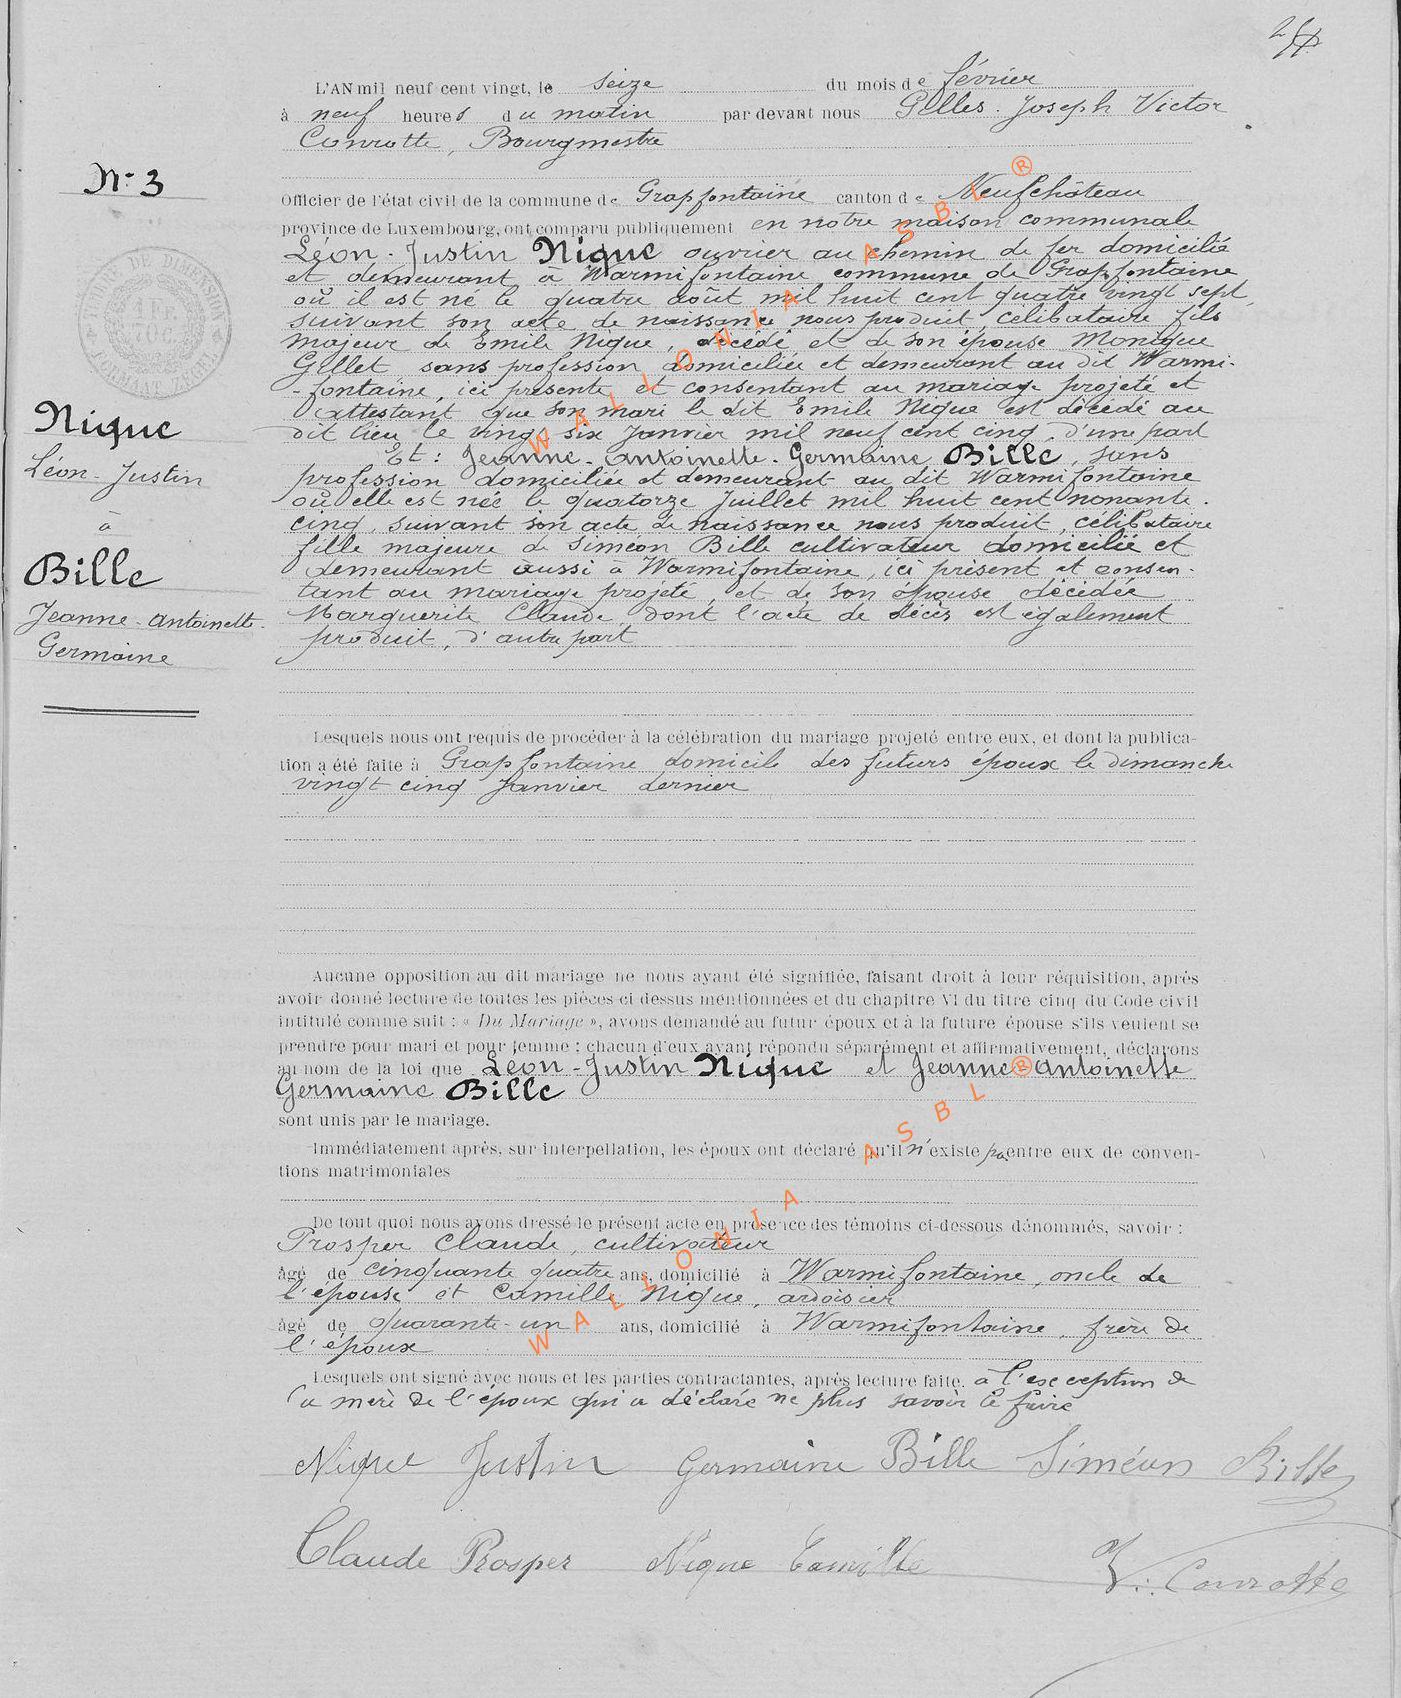 L'AN mil neuf cent vingt, le seize du mois de février
à neuf heures du matin par devant nous Gilles-Joseph Victor
Conrotte, Bourgmestre
N° 3
Officier de l'état civil de la commune de Grapfontaine canton de Neufchâteau
province de Luxembourg, ont comparu publiquement en notre maison communale
Léon-Justin Nique ouvrier au chemin de fer domicilié
et demeurant à Warmifontaine commune de Grapfontaine
où il est né le quatre août mil huit cent quatre vingt sept,
suivant son acte de naissance nous produit, célibataire fils
majeur de Emile Nique, décédé et de son épouse Monique
Gillet sans profession domiciliée et demeurant au dit Warmi-
-fontaine, ici présente et consentant au mariage projeté et
attestant que son mari le dit Emile Nique est décédé au
dit lieu le vingt six Janvier mil neuf cent cinq, d'une part
Et: Jeanne-Antoinette-Germaine Bille, sans
profession domiciliée et demeurant au dit Warmifontaine
où elle est née le quatorze Juillet mil huit cent nonante-
cinq, suivant son acte de naissance nous produit, célibataire
fille majeure de Siméon Bille cultivateur domicilié et
demeurant aussi à Warmifontaine, ici présent et consen-
tant au mariage projeté, et de son épouse décédée
Marguerite Claude, dont l'acte de décès est également
produit, d'autre part
Nique
Léon-Justin
à
Bille
Jeanne-Antoinette-
Germaine
Lesquels nous ont requis de procéder à la célébration du mariage projeté entre eux, et dont la publica-
tion a été faite à Grapfontaine domicile des futurs époux le dimanche
vingt cinq Janvier dernier
Aucune opposition au dit mariage ne nous ayant été signifiée, faisant droit à leur réquisition, après
avoir donné lecture de toutes les pièces ci dessus mentionnées et du chapitre VI du titre cinq du Code civil
intitulé comme suit : « Du Mariage », avons demandé au futur époux et à la future épouse s'ils veulent se
prendre pour mari et pour femme : chacun d'eux ayant répondu séparément et affirmativement, déclarons
au nom de la loi que Léon-Justin Nique et Jeanne Antoinette
Germaine Bille
sont unis par le mariage.
Immédiatement après, sur interpellation, les époux ont déclaré qu'il n'existe pas entre eux de conven-
tions matrimoniales
De tout quoi nous avons dressé le présent acte en présence des témoins ci-dessous dénommés, savoir :
Prosper Claude, cultivateur
âgé de cinquante quatre ans, domicilié à Warmifontaine, oncle de
l'épouse et Camille Nique, ardoisier
âgé de quarante-un ans, domicilié à Warmifontaine, frère de
l'époux
Lesquels ont signé avec nous et les parties contractantes, après lecture faite, à l'exception de
la mère de l'époux qui a déclaré ne plus savoir le faire
Nique Justin Germaine Bille Siméon Bille
Claude Prosper Nique Camille V. Conrotte
WALLONIA ASBL ®
WALLONIA ASBL ®